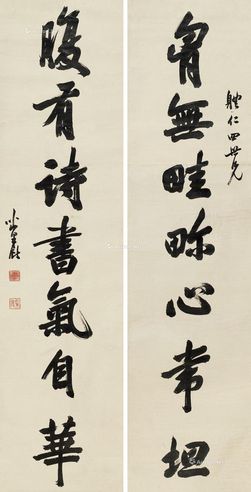 胷無畦畛心常坦
體仁四世兄
腹有詩書氣自華